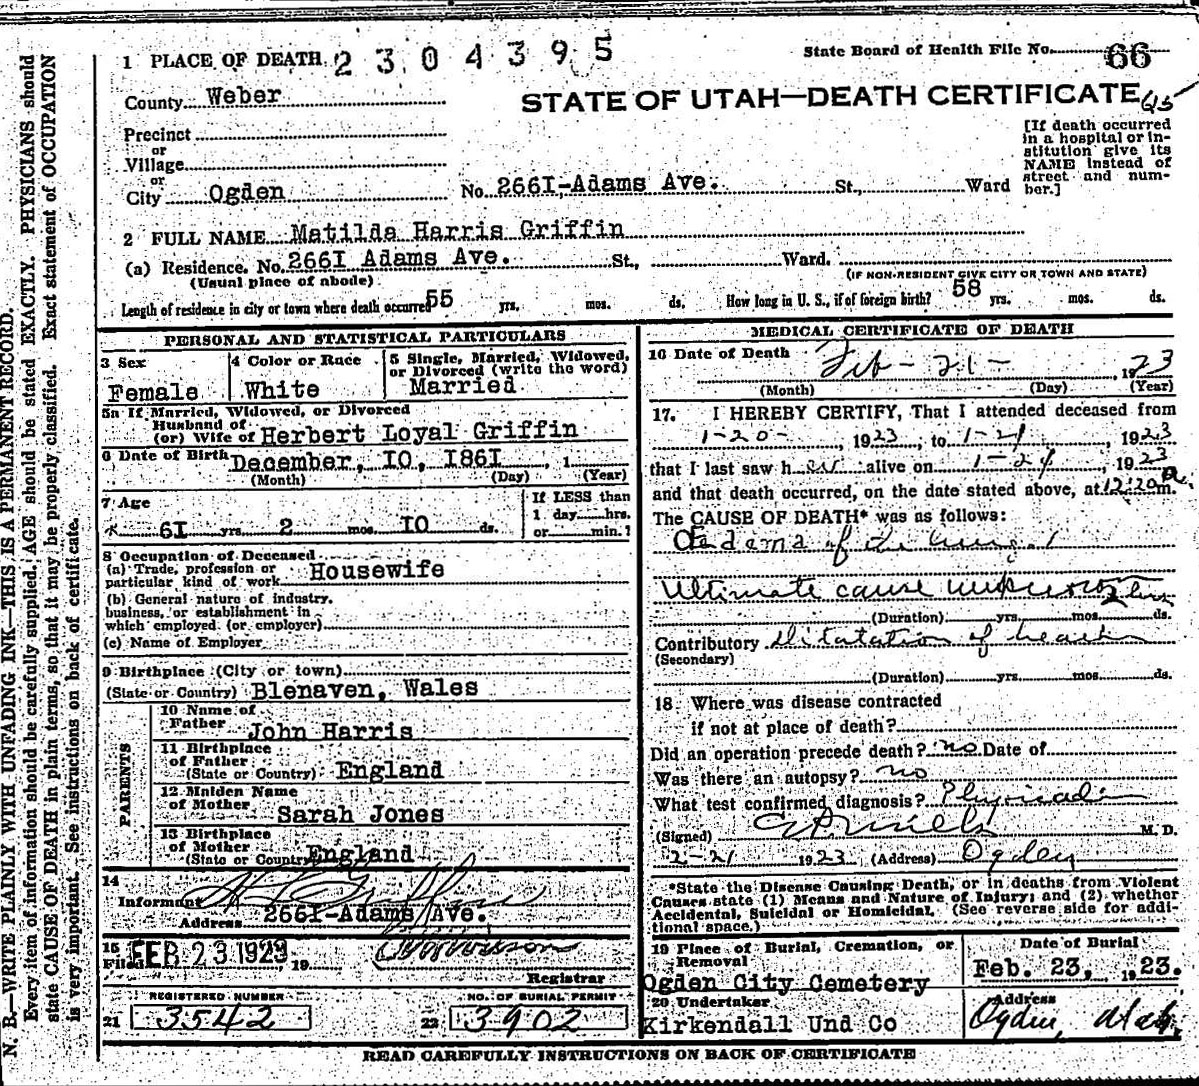 N. B.—WRITE PLAINLY WITH UNFADING INK—THIS IS A PERMANENT RECORD.
Every item of information should be carefully supplied. AGE should be stated EXACTLY. PHYSICIANS should
state CAUSE OF DEATH in plain terms, so that it may be properly classified. Exact statement of OCCUPATION
is very important. See instructions on back of certificate.
1 PLACE OF DEATH 2304395
State Board of Health File No. 66
County Weber
STATE OF UTAH—DEATH CERTIFICATE
Precinct
or
Village
or
City Ogden No. 266I-Adams Ave. St., Ward
[If death occurred
in a hospital or in-
stitution give its
NAME instead of
street and num-
ber.]
2 FULL NAME Matilda Harris Griffin
(a) Residence. No. 266I Adams Ave. St., Ward.
(Usual place of abode)
(IF NON-RESIDENT GIVE CITY OR TOWN AND STATE)
Length of residence in city or town where death occurred 55 yrs. mos. ds. How long in U. S., if of foreign birth? 58 yrs. mos. ds.
PERSONAL AND STATISTICAL PARTICULARS
3 Sex
Female
4 Color or Race
White
5 Single, Married, Widowed,
or Divorced (write the word)
Married
5a If Married, Widowed, or Divorced
Husband of
(or) Wife of Herbert Loyal Griffin
6 Date of Birth December, IO, I86I , 1
(Month) (Day) (Year)
7 Age
6I yrs. 2 mos. IO ds.
If LESS than
1 day hrs.
or min.?
8 Occupation of Deceased
(a) Trade, profession or
particular kind of work Housewife
(b) General nature of industry,
business, or establishment in
which employed (or employer)
(c) Name of Employer
9 Birthplace (City or town)
(State or Country) Blenaven, Wales
PARENTS
10 Name of
Father John Harris
11 Birthplace
of Father
(State or Country) England
12 Maiden Name
of Mother
Sarah Jones
13 Birthplace
of Mother
(State or Country) England
14
Informant
Address 266I-Adams Ave.
15
Filed FEB 23 1923, 19
Registrar
REGISTERED NUMBER
21 3542
NO. OF BURIAL PERMIT
22 3902
MEDICAL CERTIFICATE OF DEATH
16 Date of Death Feb - 21 - , 1923
(Month) (Day) (Year)
17. I HEREBY CERTIFY, That I attended deceased from
1-20- , 1923, to 1-21 , 1923
that I last saw her alive on 1-21 , 1923
and that death occurred, on the date stated above, at 12:20 a m.
The CAUSE OF DEATH* was as follows:
Oedema of the lungs
Ultimate cause unknown
(Duration) yrs. mos. ds.
Contributory Dilatation of heart
(Secondary)
(Duration) yrs. mos. ds.
18. Where was disease contracted
if not at place of death?
Did an operation precede death? no Date of
Was there an autopsy? no
What test confirmed diagnosis?
(Signed) M. D.
2-21 1923 (Address) Ogden
*State the Disease Causing Death, or in deaths from Violent
Causes state (1) Means and Nature of Injury; and (2) whether
Accidental, Suicidal or Homicidal. (See reverse side for addi-
tional space.)
19 Place of Burial, Cremation, or
Removal
Ogden City Cemetery
Date of Burial
Feb. 23, 1923.
20 Undertaker
Kirkendall Und Co
Address
Ogden, Utah.
READ CAREFULLY INSTRUCTIONS ON BACK OF CERTIFICATE